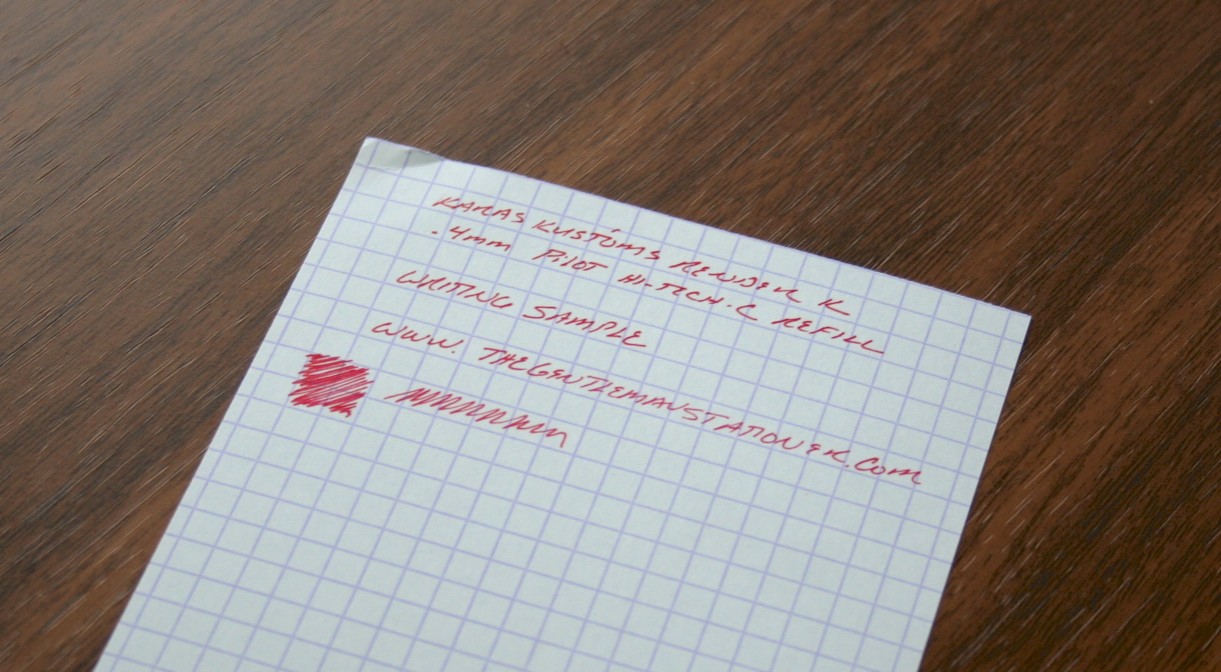 KARAS KUSTOMS RENDER K
.4mm PILOT HI-TECH-C REFILL
WRITING SAMPLE
WWW.THEGENTLEMANSTATIONER.COM